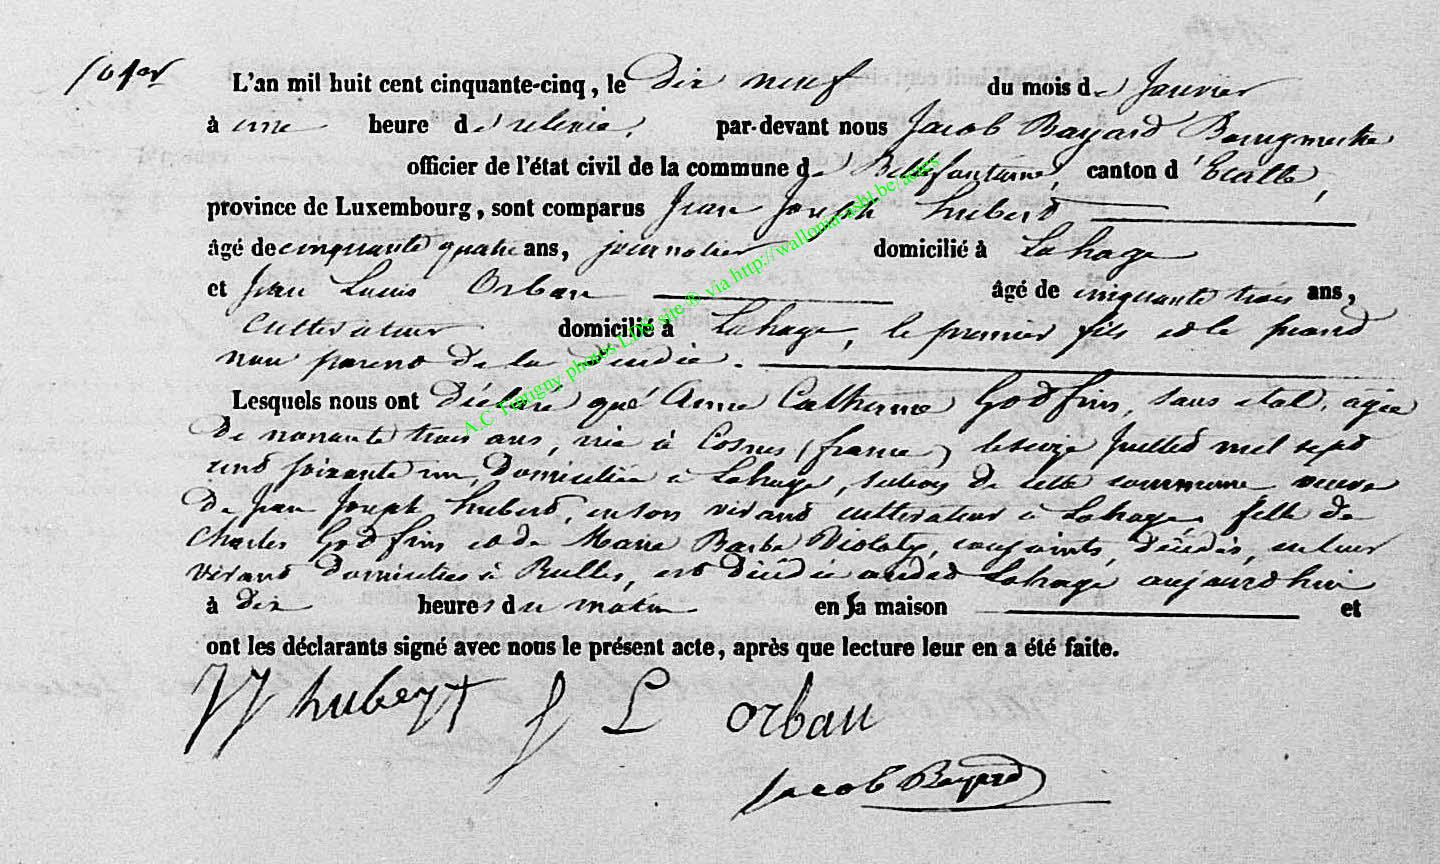 L'an mil huit cent cinquante-cinq, le Dix neuf du mois de Janvier
à une heure de relevée, par-devant nous Jacob Bayard Bourgmestre
officier de l'état civil de la commune de Bellefontaine, canton d'Etalle,
province de Luxembourg, sont comparus Jean Joseph hubert
âgé de cinquante quatre ans, journalier domicilié à Lahage
et Jean Louis Orban âgé de cinquante trois ans,
cultivateur domicilié à Lahage, le premier fils et le second
non parent de la Décédée.
Lesquels nous ont Déclaré que Anne Catherine Godfrin, sans etat, agée
De nonante trois ans, née à Cosnes (france) le seize Juillet mil sept
cent soixante un, Domiciliée à Lahage, section de cette commune veuve
De Jean Joseph hubert, en son vivant cultivateur à Lahage, fille de
Charles Godfrin et de Marie Barbe conjoints, décédés, en leur
vivant Domiciliés à Bulles, est Décédée audit Lahage aujourd'hui
à Dix heures du matin en sa maison et
ont les déclarants signé avec nous le présent acte, après que lecture leur en a été faite.
JJ hubert J L orban
Jacob Bayard
A.C Tintigny photos LDS site ® via http://wallonia-asbl.be/actes